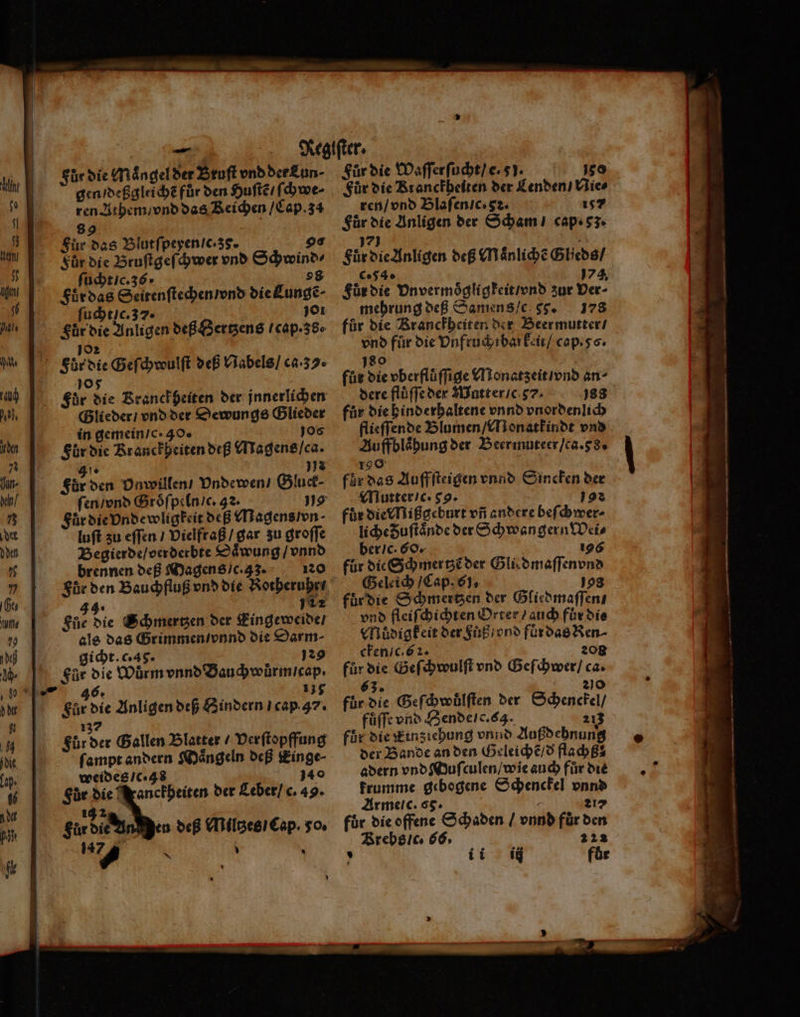 Register.
Für die Mängel der Brust vnd der Lun-
gen/deßgleichẽ für den Hustẽ/ schwe-
ren Athem/vnd das Keichen /Cap.34
89
Für das Blutspeyen/c.35. 96
Für die Brustgeschwer vnd Schwind-
sucht/c.36. 98
Für das Seitenstechen/vnd die Lungẽ-
sucht/c.37. 101
Für die Anligen deß Hertzens /cap.38.
102
Für die Geschwulst deß Nabels/ ca.39.
105
Für die Kranckheiten der jnnerlichen
Glieder/ vnd der Dewungs Glieder
in gemein/c.40. 106
Für die Kranckheiten deß Magens/ca.
41. 112
Für den Vnwillen/ Vndewen/ Gluck-
sen/vnd Gröspeln/c. 42. 119
Für die Vndewligkeit deß Magens/vn-
lust zu essen / Vielfraß/ gar zu grosse
Begierde/verderbte Däwung / vnnd
brennen deß Magens/c.43. 120
Für den Bauchfluß vnd die Rotheruhr/
44. 122
Für die Schmertzen der Eingeweide/
als das Grimmen/vnnd die Darm-
gicht.c.45. 129
Für die Würm vnnd Bauchwürm/cap.
46. 135
Für die Anligen deß Hindern / cap.47.
137
Für der Gallen Blatter / Verstopffung
sampt andern Mängeln deß Einge-
weides/c.48 140
Für die Kranckheiten der Leber/ c. 49.
142
Für die Anligen deß Miltzes/ Cap. 50.
147
Für die Wassersucht/ c. 51. 150
Für die Kranckheiten der Lenden/ Nie-
ren/ vnd Blasen/c.52. 157
Für die Anligen der Scham / cap.53.
171
Für die Anligen deß Mänlichẽ Glieds/
c.54. 174
Für die Vnvermögligkeit/vnd zur Ver-
mehrung deß Samens/c. 55. 178
für die Kranckheiten der Beermutter/
vnd für die Vnfruchtbarkeit/ cap.56.
180
für die vberflüssige Monatzeit/vnd an-
dere flüsse der Mutter/c.57. 188
für die hinderhaltene vnnd vnordenlich
fliessende Blumen/Monatkindt vnd
Auffblähung der Beermutter/ca.58.
190
für das Auffsteigen vnnd Sincken der
Mutter/c. 59. 192
für die Mißgeburt vñ andere beschwer-
liche Zustände der Schwangern Wei-
ber/c. 60. 196
für die Schmertzẽ der Glidmassen vnd
Geleich /Cap. 61. 198
für die Schmertzen der Gliedmassen/
vnd fleischichten Orter / auch für die
Müdigkeit der Füß/vnd für das Ren-
cken/c.62. 208
für die Geschwulst vnd Geschwer/ ca.
63. 210
für die Geschwülsten der Schenckel/
füsse vnd Hende/c.64. 213
für die Einziehung vnnd Außdehnung
der Bande an den Geleichẽ/d flachß-
adern vnd Musculen/wie auch für die
krumme gebogene Schenckel vnnd
Arme/c. 65. 217
für die offene Schaden / vnnd für den
Krebs/c. 66. 222
ii iij für